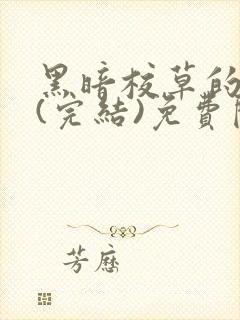 黑暗校草的
(完結)免費
芳歷